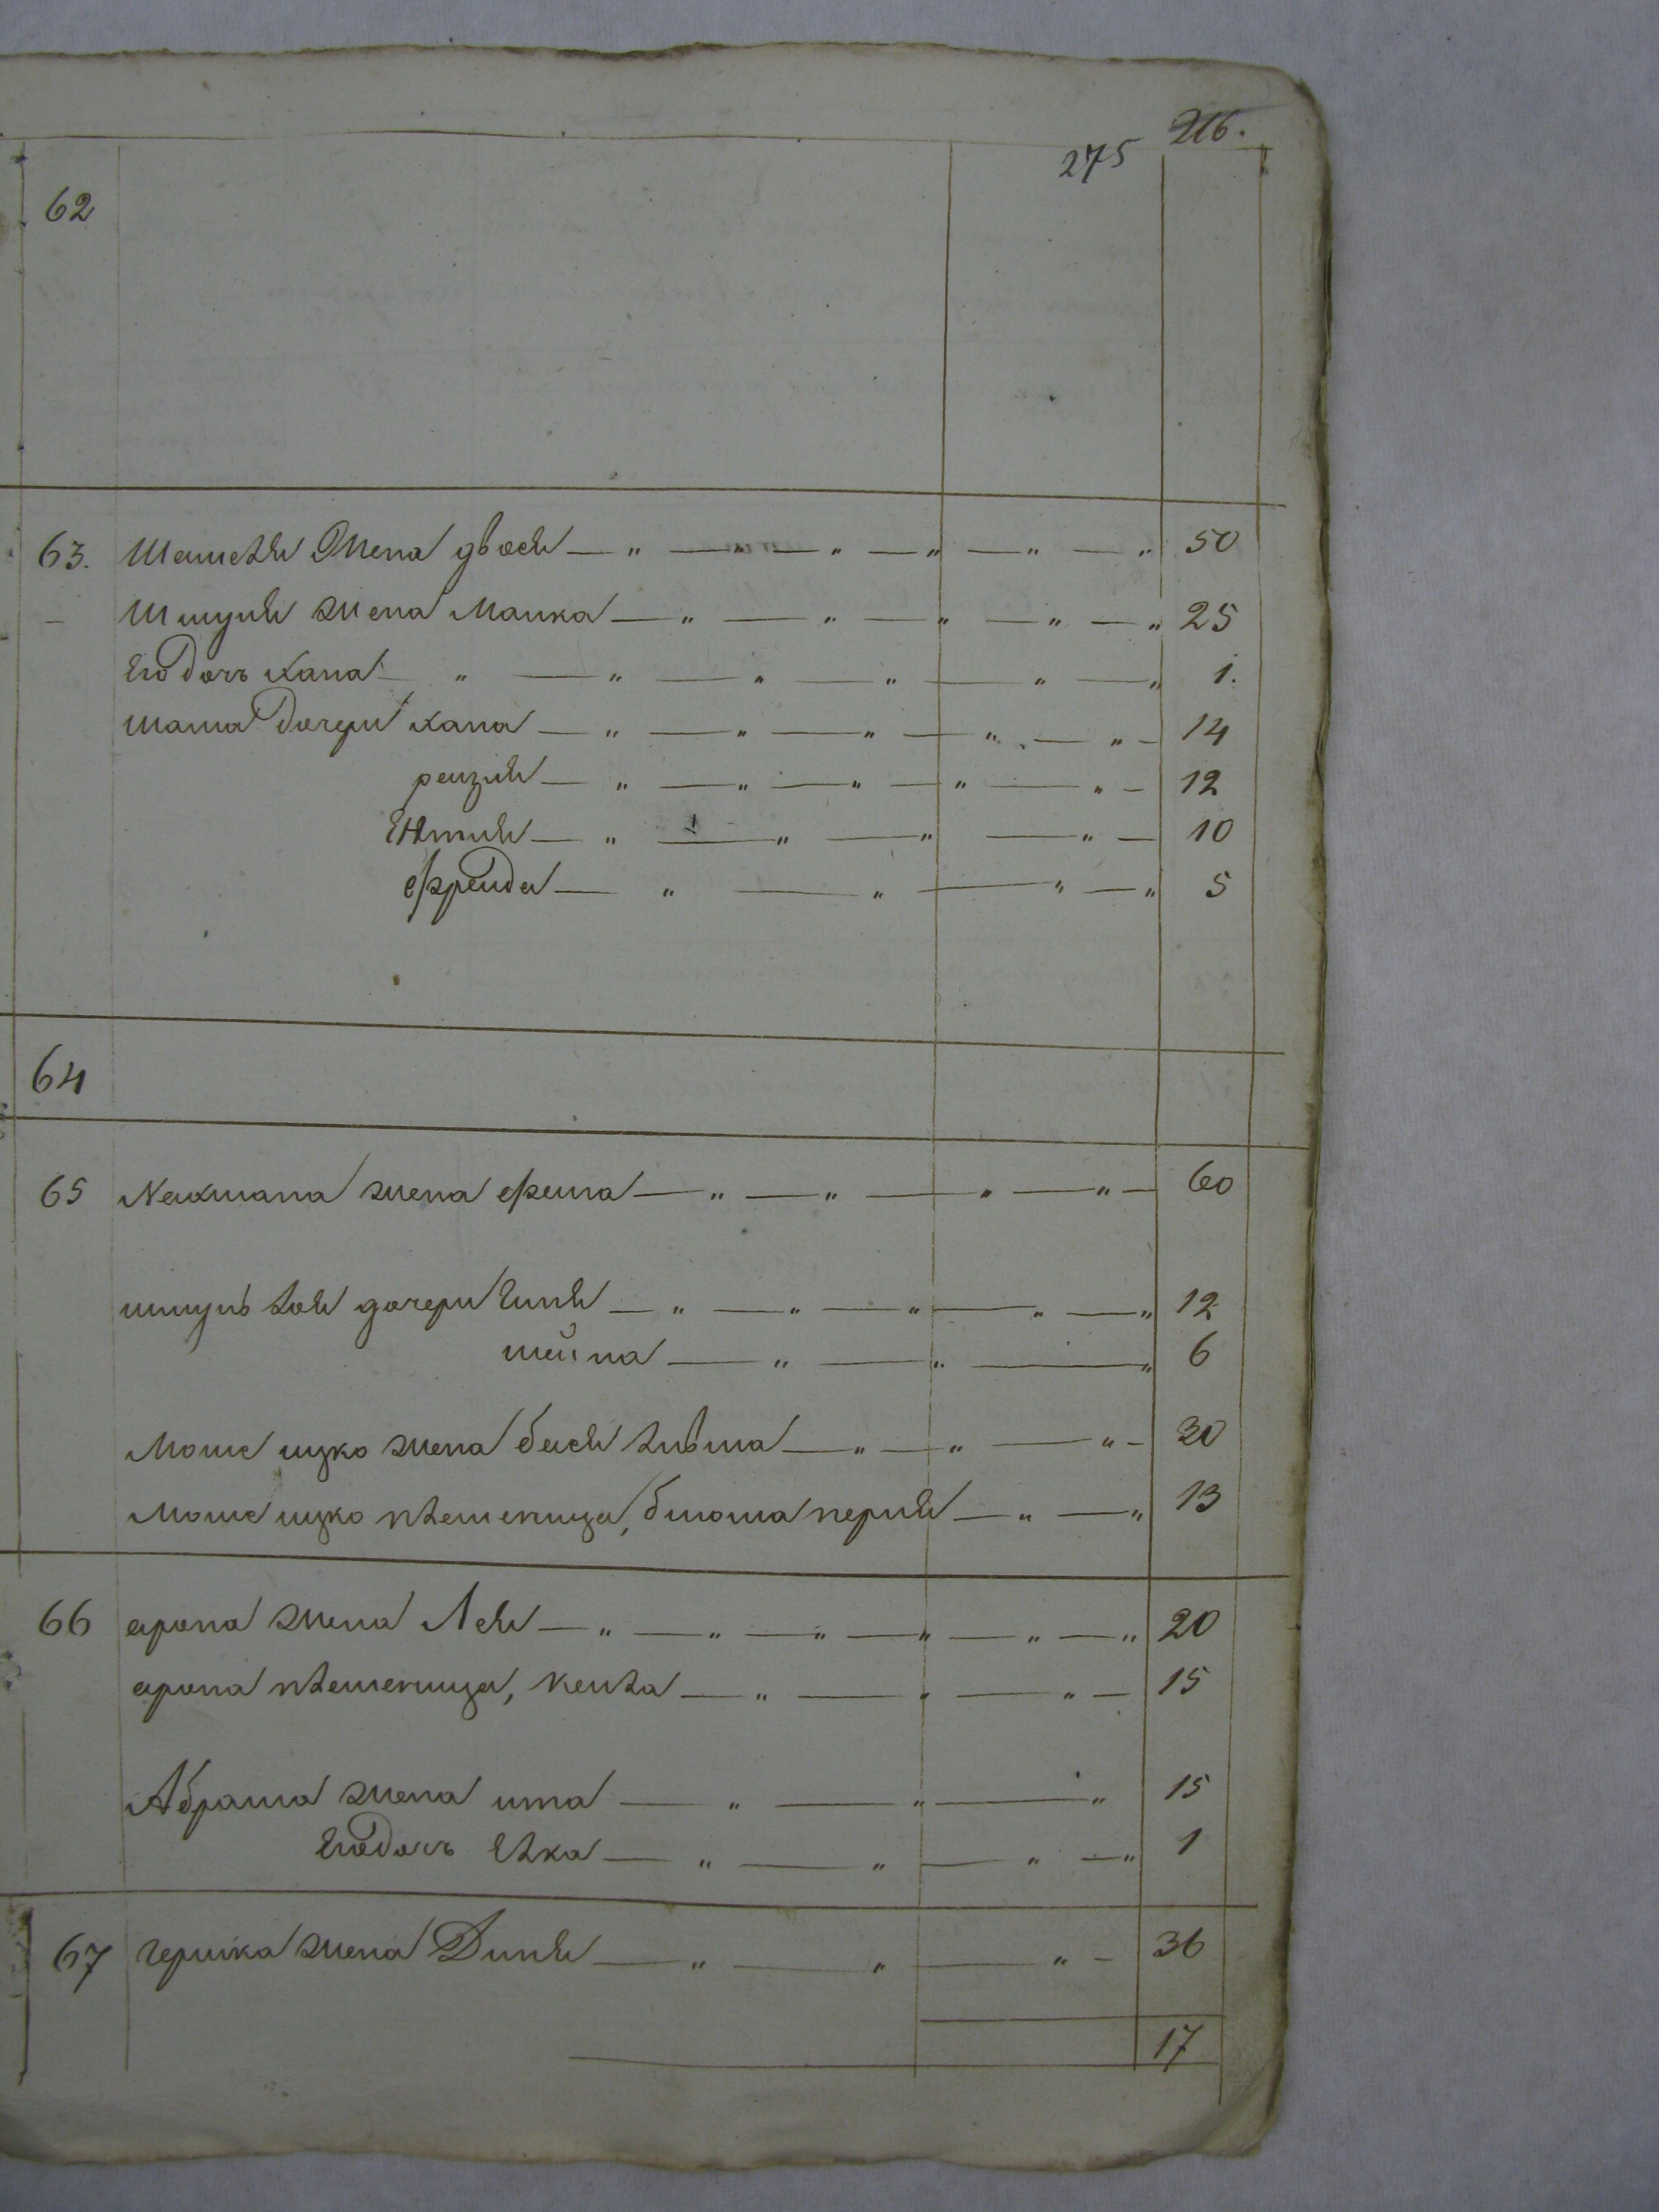 216.
275
62
63. Шмшеля Жена двося — " — " — " — " — " — " 50
— Шмуля жена Малка — " — " — " — " — " 25
Ево дочь хана — " — " — " — " — " — " 1.
Мошка дочери хана — " — " — " — " — " — 14
рейзля — " — " — " — " — " — 12
Ентля — " — " — " — " — 10
фрейда — " — " — " — " 5
64
65 Нахмана жена фейга — " — " — " — " — 60
шмуль лея дочери Гинля — " — " — " — " — " 12
шейна — " — " — " 6
Мошко ицко жена бася ливша — " — " — " — 30
Мошко ицко племеница, блюма перля — " — " 13
66 арона жена Лея — " — " — " — " — " — " 20
арона племеница, кейла — " — " — " — 15
Абрама жена ита — " — " — " 15
Ево дочь Елка — " — " — " — " 1
67 гершка жена Динля — " — " — " — 36
17